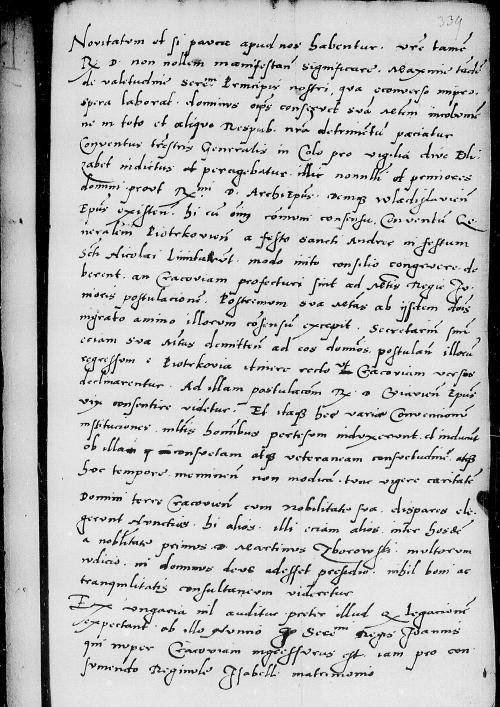 339
Novitatum et si paucæ apud nos habentur. vre tamē
R. D. non nollem manifestari significare. Maxime
de valetudine Serenmi Principis nostri, qua econverso impro-
spera laborat. dominus ops conservet suā Mtem incolumē
ne in toto et aliquo Respub. nra detrimētū paciatur
Conventus trestris Generalis in Colo pro vigilia dive Eli
zabet indictus et peragebatur. illic nonulli et
domini. prout Rmi D. ArchiEpus. Deniq Wladislavien
Epus existen. hi cū oim comuni consensu Conventū Ge
neralem Piotrkovien a festo sancti Andree in festum
Sct Nicolai. modo inito consilio congerere de
berent. an Cracoviam profecturi sint ad Mtis Regie Ju
nioris postulacionē. Postremum sua Mtas ab ipsitem dois
ingrato animo illorum cōsensū excepit. Secretariū sui
eciam sua Mtas demitten ad eos dominos. postulan illorū
regressum e Piotrkovia itinere recto Cracoviam versus
declinarentur. Ad illam postulacōm R. D. Epus
vix consentire videtur. Et itaq hee varie Convencionū
instituciones. mltis hominibus pertesum induxerunt. et inducūt
ob illam consuetam atq veteraneam consuetudinē. atq
hoc tempore. meminen non modicā. tunc vigere caritatē
Domini terre Cracovien cum nobilitate sua. dispares ele
gerunt Nuncios. hi alios. illi eciam alios. inter hosdē
a nobilitate primus D. Martinus Zborowski. multorum
iudicio. ni dominus deus adesset presidio. nihil boni ac
tranquilitatis consultaneum videretur
Ex Ungaria nil auditur preter illud q Legacionē
expectant. ob illo Serenm Regis Joannis
qui nuper Cracoviam ingressurus est. iam pro con
sumendo Reginule Isabelle matrimonio